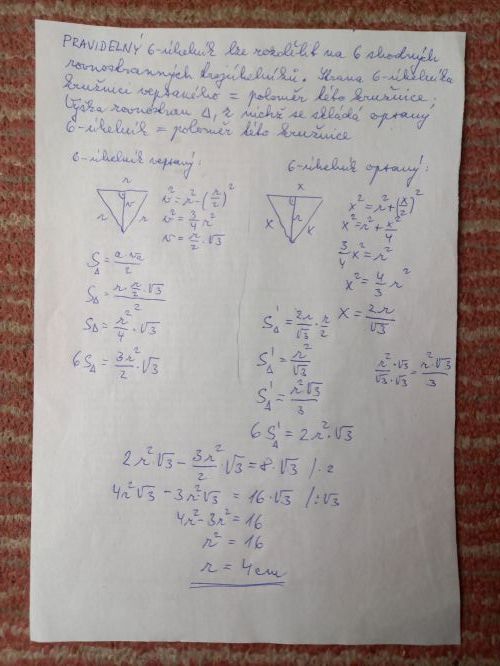 PRAVIDELNÝ 6-úhelník lze rozdělit na 6 shodných
rovnostranných trojúhelníků. Strana 6-úhelníka
kružnici vepsaného = poloměr této kružnice;
Výška rovnostran. Δ, z nichž se skládá opsaný
6-úhelník = poloměr této kružnice
6-úhelník vepsaný:
r
r v r
v² = r² - (r/2)²
v² = 3/4 r²
v = r/2 · √3
S_Δ = a·va/2
S_Δ = r · r/2 · √3 / 2
S_Δ = r²/4 · √3
6S_Δ = 3r²/2 · √3
6-úhelník opsaný:
x
x r x
x² = r² + (x/2)²
x² = r² + x²/4
3/4 x² = r²
x² = 4/3 r²
x = 2r/√3
S_Δ' = 2r/√3 · r/2
S_Δ' = r²/√3
r²·√3/√3·√3 = r²√3/3
S_Δ' = r²√3/3
6S_Δ' = 2r²√3
2r²√3 - 3r²/2 √3 = 8·√3 /·2
4r²√3 - 3r²√3 = 16·√3 /:√3
4r² - 3r² = 16
r² = 16
r = 4cm